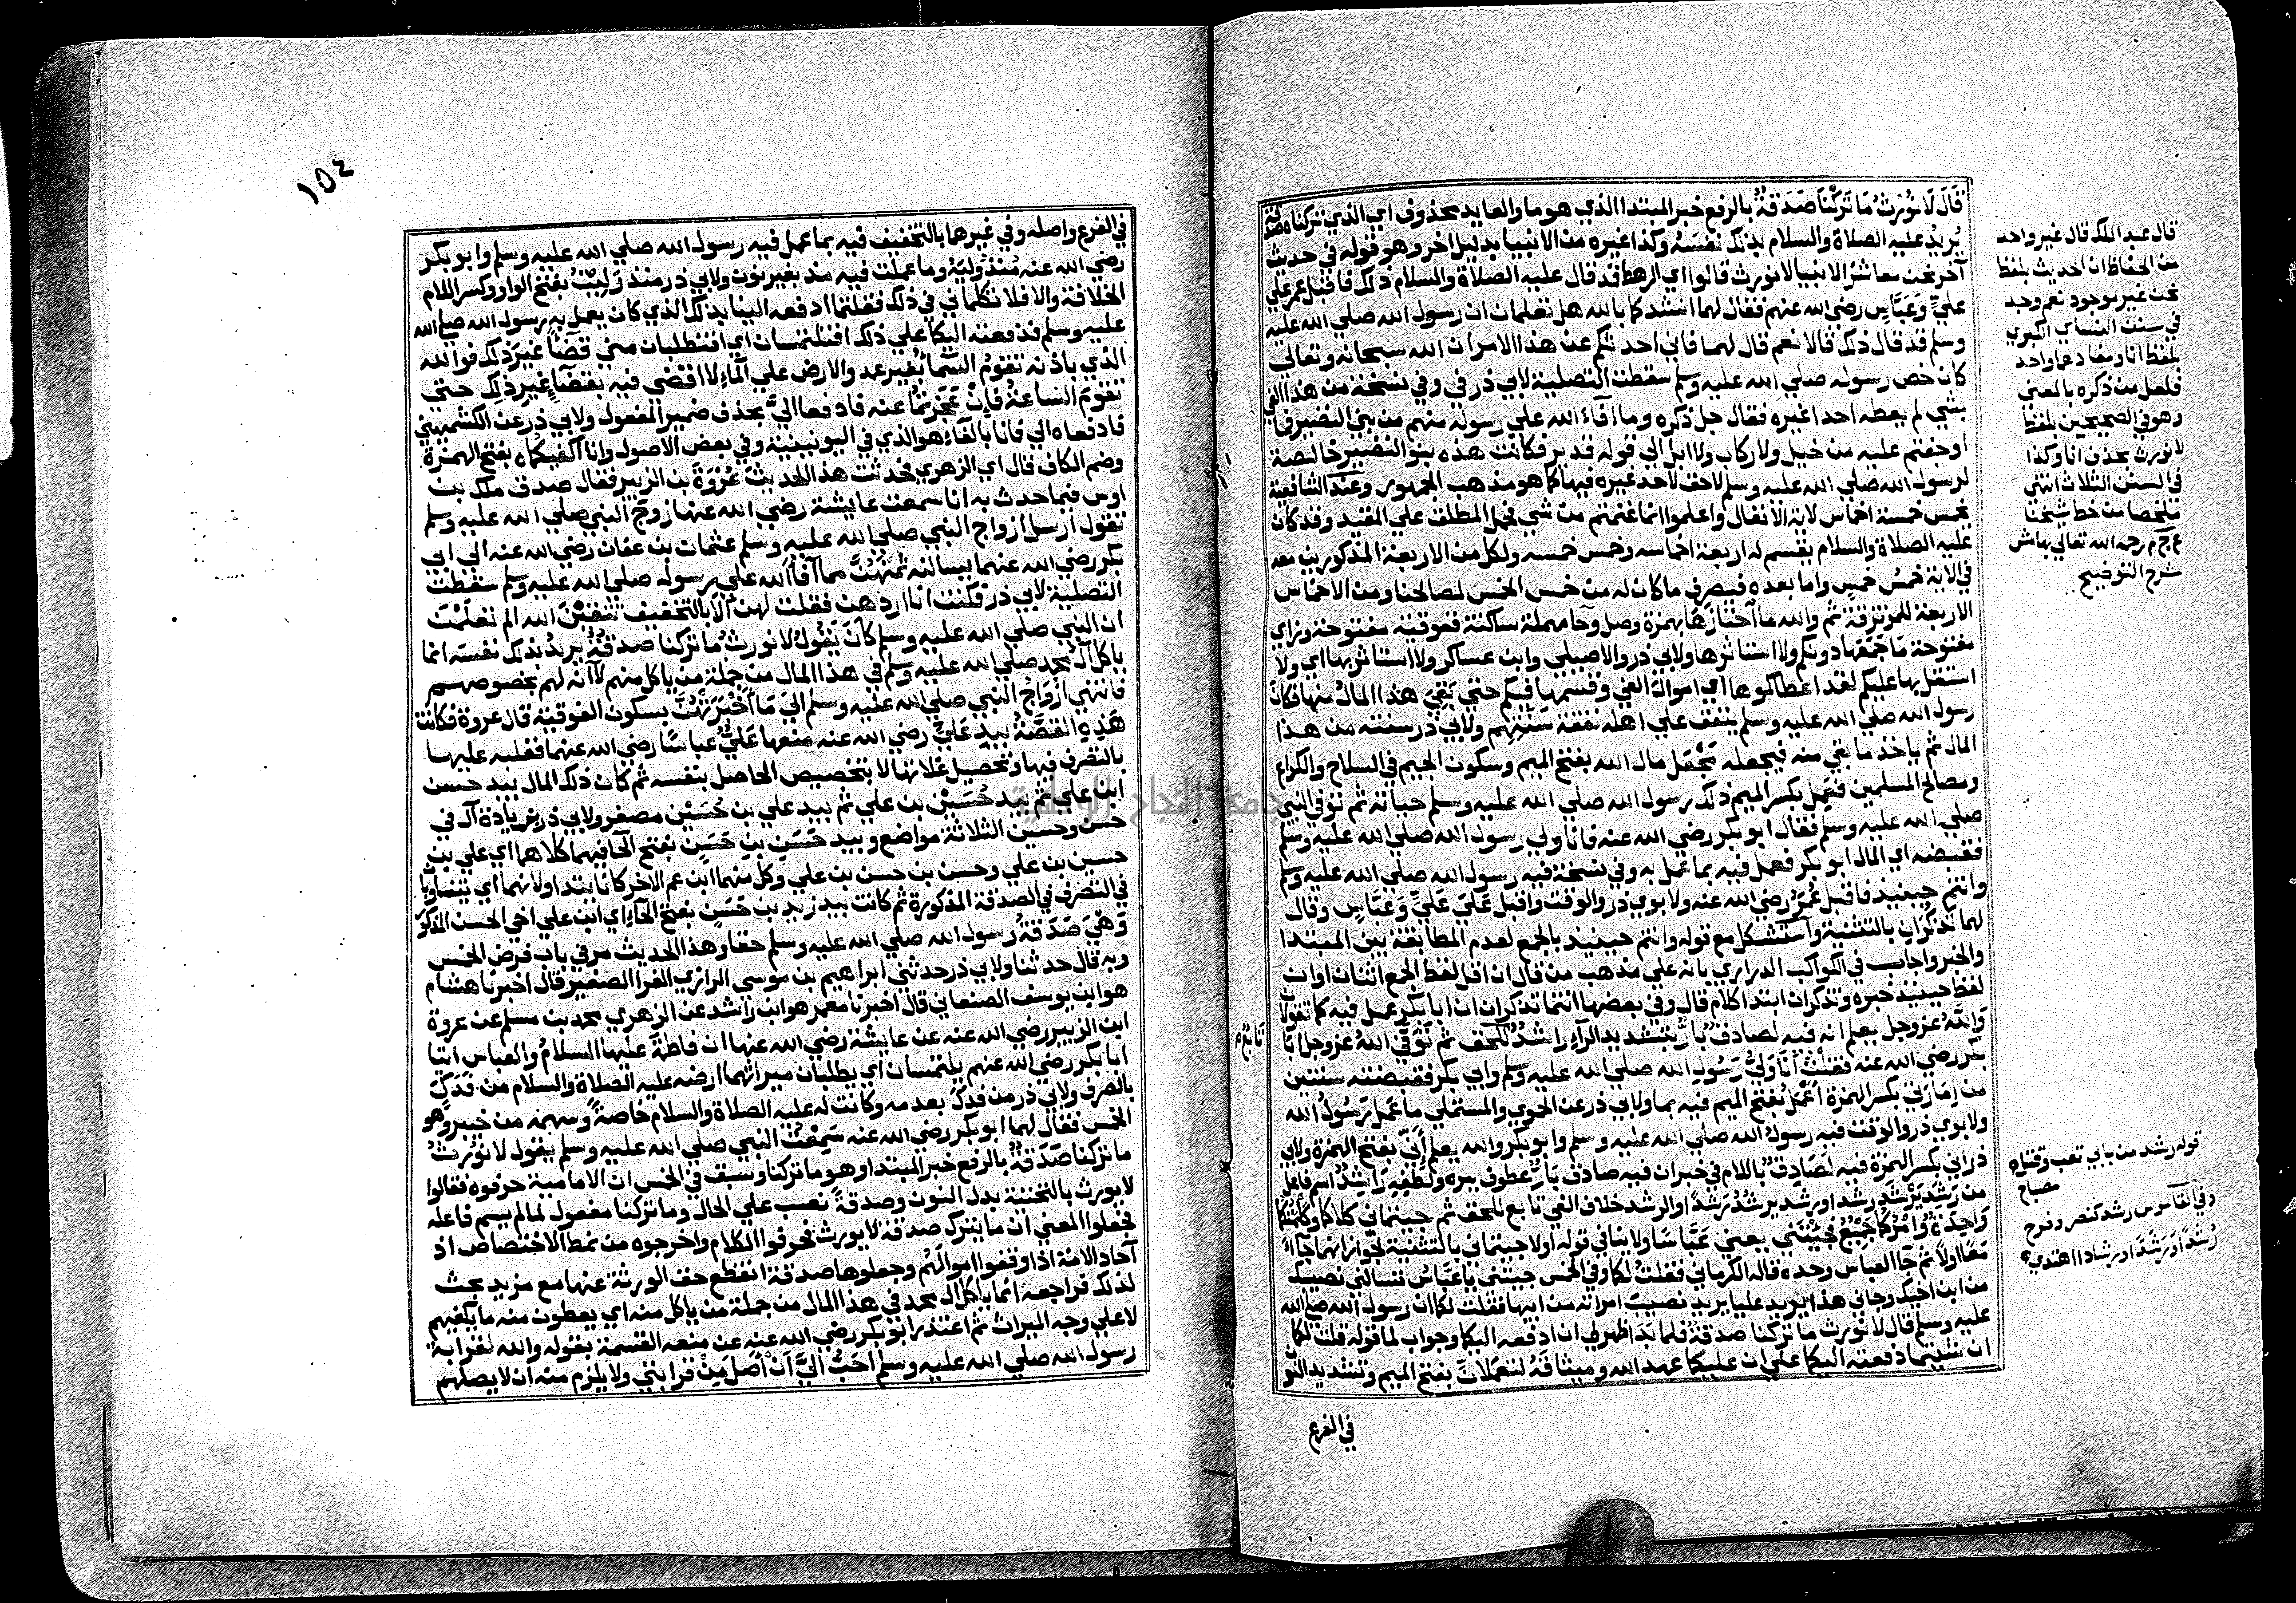 قال لا نورث ما تركنا صدقة بالرفع خبر المبتدا الذي هو ما والعايد محذوف اي الذي تركناه صدقة
يريد عليه الصلاة والسلام بذلك نفسه وكذا غيره من الانبيا بدليل اخر وهو قوله في حديث
آخر نحن معاشر الانبيا لا نورث قالوا اي الرهط قد قال عليه الصلاة والسلام ذلك فاقبل عمر علي
علي وعباس رضي الله عنهم فقال لهما انشدكما بالله هل تعلمان ان رسول الله صلي الله عليه
وسلم قد قال ذلك قالا نعم قال لهما فاني احدثكم عن هذا الامر ان الله سبحانه وتعالي
كان خص رسوله صلي الله عليه وسلم سقطت التصلية لابي ذر في وفي نسخة من هذا الفي
بشي لم يعطه احدا غيره فقال جل ذكره وما افاء الله علي رسوله منهم من بني النضير فما
اوجفتم عليه من خيل ولا ركاب ولا ابل الي قوله قدير فكانت هذه بنو النضير خالصة
لرسول الله صلي الله عليه وسلم لا حق لاحد غيره فيها كما هو مذهب الجمهور وعند الشافعية
يخمس خمسة اخماس لاية الانفال واعلموا انما غنمتم من شي فحمل المطلق علي المقيد وقد كان
عليه الصلاة والسلام يقسم له اربعة اخماسه وخمس خمسه ولكل من الاربعة المذكورين معه
في الاية خمس خمس واما بعده فيصرف ما كان له من خمس الخمس لمصالحنا ومن الاخماس
الاربعة للمرتزقة ثم والله ما احتازها بهمزة وصل وحا مهملة ساكنة ففوقية مفتوحة وزاي
مفتوحة ما جمعها دونكم ولا استاثرها ولابي ذر والاصيلي وابن عساكر ولا استاثر بها اي ولا
استقل بها عليكم لقد اعطاكموها اي اموال الفي وقسمها فيكم حتي بقي هذا المال منها فكان
رسول الله صلي الله عليه وسلم ينفق علي اهله نفقة سنتهم ولابي ذر سنته من هذا
المال ثم ياخذ ما بقي منه فيجعله مجعل مال الله بفتح الميم وسكون الجيم في السلاح والكراع
ومصالح المسلمين فعمل بكسر الميم ذلك رسول الله صلي الله عليه وسلم حياته ثم توفي النبي
صلي الله عليه وسلم فقال ابو بكر رضي الله عنه فانا ولي رسول الله صلي الله عليه وسلم
فقبضه اي المال ابو بكر فعمل فيه بما عمل به وفي نسخة فيه رسول الله صلي الله عليه وسلم
وانتم حينيذ فاقبل عمر رضي الله عنه ولابوي ذر والوقت واقبل علي علي وعباس وقال
لهما تذكران بالتثنية واستشكل مع قوله وانتم حينيذ بالجمع لعدم المطابقة بين المبتدا
والخبر واجاب في الكواكب الدراري بانه علي مذهب من قال ان اقل لفظ الجمع اثنان او ان
لفظ حينيذ خبره وتذكران ابتدا كلام قال وفي بعضها انتما تذكران ان ابا بكر عمل فيه كما تقولان
والله عز وجل يعلم انه فيه لصادق بار بتشديد الراء راشد تابع للحق ثم توفي الله عز وجل ابا
بكر رضي الله عنه فقلت انا ولي رسول الله صلي الله عليه وسلم وابي بكر فقبضته سنتين
من امارتي بكسر الهمزة اعمل بفتح الميم فيه بما ولابي ذر عن الحموي والمستملي ما عمل رسول الله
ولابوي ذر والوقت فيه رسول الله صلي الله عليه وسلم وابو بكر والله يعلم اني بفتح الهمزة ولابي
ذر اني بكسر الهمزة فيه لصادق باللام في خبر ان فيه صادق بار عطوف ببره ولطفه راشد اسم فاعل
من رشد يرشد رشدا ورشد يرشد رشدا والرشد خلاف الغي تابع للحق ثم جيتماني كلاكما وكلمتكما
واحدة وامركما جميع فجيتني يعني عباسا ولا ينافي قوله اولا جيتماني بالتثنية لجواز انهما جاآ
معا اولا ثم جا العباس وحده قاله الكرماني فقلت لكما وفي الخمس جيتني يا عباس تسالني نصيبك
من ابن اخيك وجاني هذا يريد عليا يريد نصيب امراته من ابيها فقلت لكما ان رسول الله صلي الله
عليه وسلم قال لا نورث ما تركنا صدقة فلما بدا ظهر لي ان ادفعه اليكما وجواب لما قوله قلت لكما
ان شيتما دفعته اليكما علي ان عليكما عهد الله وميثاقه لتعملان بفتح الميم وتشديد النون
في الفرع
قال عبد الملك قال غير واحد
من الحفاظ ان الحديث بلفظ
نحن غير موجود نعم وجد
في سنن النساي الكبري
بلفظ انا ومفادهما واحد
فلعل من ذكره بالمعني
وهو في الصحيحين بلفظ
لا نورث بحذف انا وكذا
في السنن الثلاث انتهي
ملخصا من خط شيخنا
ع ج م رحمه الله تعالي بهامش
شرح التوضيح
قوله رشد من بابي تعب وقتل اه
مصباح
وفي القاموس رشد كنصر وفرح
رشدا ورشدا ورشادا اهتدي
١٥٤
في الفرع واصله وفي غيرهما بالتخفيف فيه بما عمل فيه رسول الله صلي الله عليه وسلم وابو بكر
رضي الله عنه منذ وليته وما عملت فيه مذ بغير نون ولابي ذر منذ وليت بفتح الواو وكسر اللام
الخلافة والا فلا تكلماني في ذلك فقلتما ادفعه الينا بذلك الذي كان يعمل به رسول الله صلي الله
عليه وسلم فدفعته اليكما علي ذلك افتلتمسان اي افتطلبان مني قضا غير ذلك فوالله
الذي باذنه تقوم السما بغير عمد والارض علي الماء لا اقضي فيه بقضاء غير ذلك حتي
تقوم الساعة فان عجزتما عنه فادفعا الي بحذف ضمير المفعول ولابي ذر عن الكشميهني
فادفعاه الي فانا بالفاء هو الذي في اليونينية وفي بعض الاصول وانا اكفيكماه بفتح الهمزة
وضم الكاف قال اي الزهري فحدثت هذا الحديث عروة بن الزبير فقال صدق ملك بن
اوس فيما حدث به انا سمعت عايشة رضي الله عنها زوج النبي صلي الله عليه وسلم
تقول ارسل ازواج النبي صلي الله عليه وسلم عثمان بن عفان رضي الله عنه الي ابي
بكر رضي الله عنهما يسالنه ثمنهن مما افا الله علي رسوله صلي الله عليه وسلم سقطت
التصلية لابي ذر فكنت انا اردهن فقلت لهن الا بالتخفيف تتقين الله الم تعلمن
ان النبي صلي الله عليه وسلم كان يقول لا نورث ما تركنا صدقة يريد بذلك نفسه انما
ياكل آل محمد صلي الله عليه وسلم في هذا المال من جملة من ياكل منهم لا انه لهم بخصوصهم
فانتهي ازواج النبي صلي الله عليه وسلم الي ما اخبرتهن بسكون الفوقية قال عروة فكانت
هذه الصدقة بيد علي رضي الله عنه منعها علي عباسا رضي الله عنهما فغلبه عليها
بالتصرف فيها وتحصيل غلاتها لا بتخصيص الحاصل بنفسه ثم كان ذلك المال بيد حسن
ابن علي ثم بيد حسين بن علي ثم بيد علي بن حسين مصغر ولابي ذر بزيادة ال في
حسن وحسين الثلاثة مواضع وبيد حسن بن حسن بفتح الحا فيهما كلاهما اي علي بن
حسين بن علي وحسن بن حسن بن علي وكل منهما ابن عم الاخر كانا يتداولانها اي يتناوبان
في التصرف في الصدقة المذكورة ثم كانت بيد زيد بن حسن بفتح الحاء اي ابن علي اخي الحسن المذكور
وهي صدقة رسول الله صلي الله عليه وسلم حقا وهذا الحديث مر في باب فرض الخمس
وبه قال حدثنا ولابي ذر حدثني ابراهيم بن موسي الرازي الفرا الصغير قال اخبرنا هشام
هو ابن يوسف الصنعاني قال اخبرنا معمر هو ابن راشد عن الزهري محمد بن مسلم عن عروة
ابن الزبير رضي الله عنه عن عايشة رضي الله عنها ان فاطمة عليها السلام والعباس اتيا
ابا بكر رضي الله عنهم يلتمسان اي يطلبان ميراثهما ارضه عليه الصلاة والسلام من فدك
بالصرف ولابي ذر من فدك بعدمه وكانت له عليه الصلاة والسلام خاصة وسهمه من خيبر وهو
الخمس فقال لهما ابو بكر رضي الله عنه سمعت النبي صلي الله عليه وسلم يقول لا نورث
ما تركنا صدقة بالرفع خبر المبتدا وهو ما تركنا وسبق في الخمس ان الامامية حرفوه فقالوا
لا يورث بالتحتية بدل النون وصدقة نصب علي الحال وما تركنا مفعول لما لم يسم فاعله
فجعلوا المعني ان ما يترك صدقة لا يورث فحرفوا الكلام واخرجوه من نمط الاختصاص اذ
آحاد الامة اذا وقفوا اموالهم وجعلوها صدقة انقطع حق الورثة عنها مع مزيد بحث
لذلك فراجعه انما ياكل آل محمد في هذا المال من جملة من ياكل منه اي يعطون منه ما يكفيهم
لا علي وجه الميراث ثم اعتذر ابو بكر رضي الله عنه عن منعه القسمة بقوله والله لقرابة
رسول الله صلي الله عليه وسلم احب الي ان اصل من قرابتي ولا يلزم منه ان لا يصلهم
جامعة النجاح الوطنية